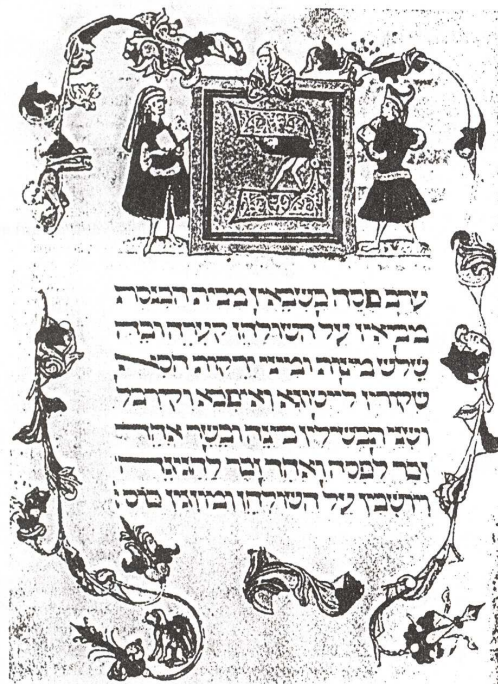 ערב פסח כשבאין מבית הכנסת
מביאין על השולחן קערה ובה
שלש מצות ומיני ירקות
שקורין ליטוגא
ושני תבשילין ביצה ובשר אחד
זכר לפסח ואחד זכר לחגיגה
ויושבין על השולחן ומוזגין כוס